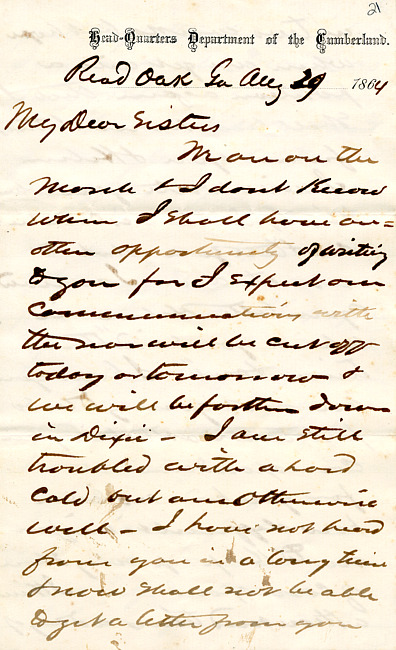 21
Head-Quarters Department of the Cumberland.
Read Oak Ga Aug 29 1864
My Dear Sisters
We are on the
March & I dont Know
when I shall have an=
other opportunity of writing
to you for I expect our
communications with
the rear will be cut off
today or tomorrow &
we will be farther down
in Dixie – I am still
troubled with a hard
cold but am Otherwise
well – I have not heard
from you in a long time
& now shall not be able
to get a letter from you